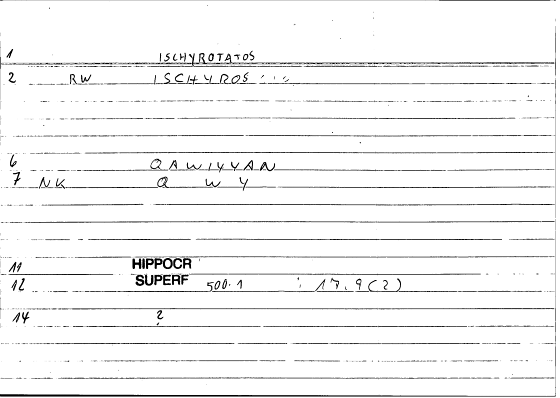 1 ISCHYROTATOS
2 RW ISCHYROS
6 QAWIYYAN
7 NK Q W Y
11 HIPPOCR
12 SUPERF 500.1 : 17.9(2)
14 ?